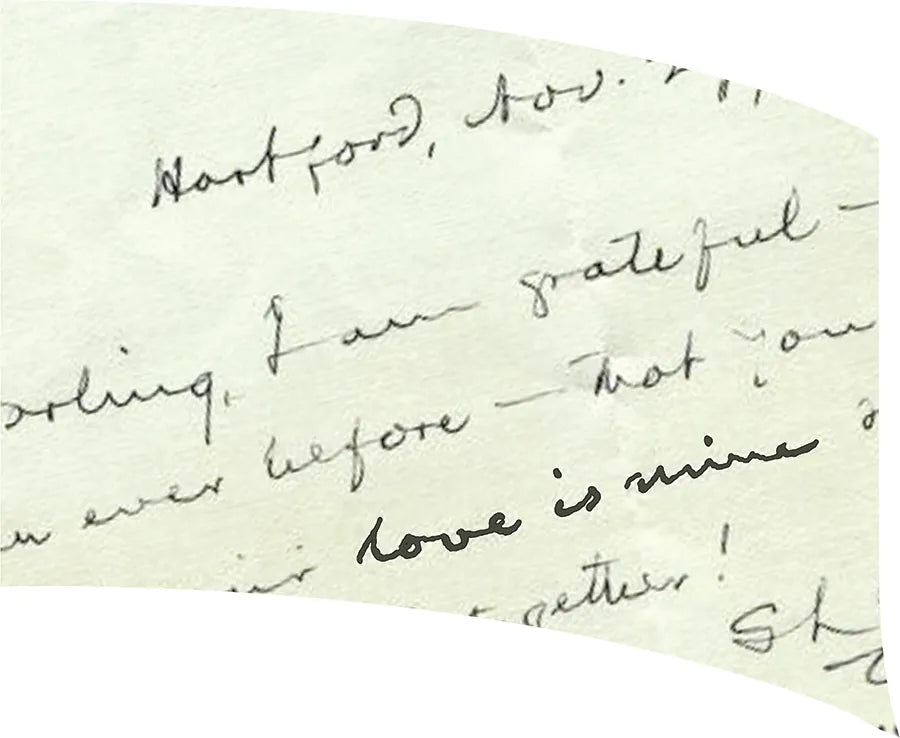 Hartford, Nov. 27,
arling, I am grateful —
n ever before — that you
our love is mine
together!